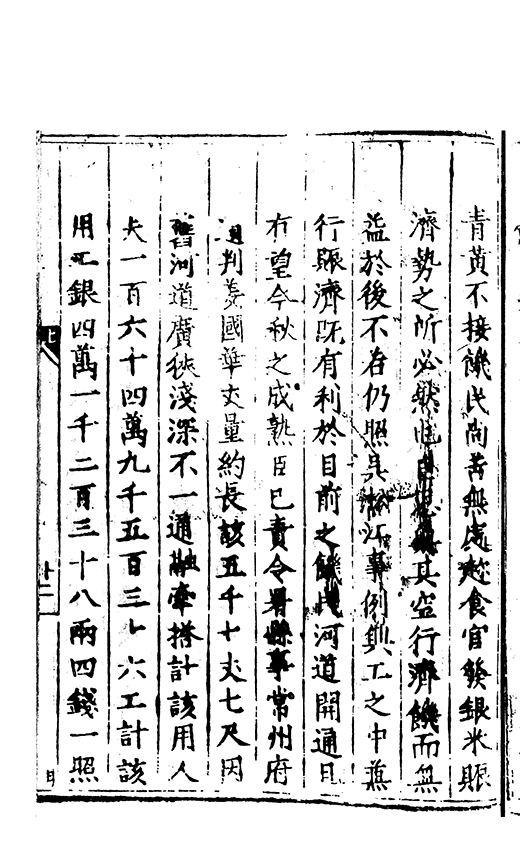 青黃不接饑民尚苦無處趂食官發銀米賑
濟勢之所必然也其空行濟饑而無
益於後不若仍照吳淞江事例興工之中兼
行賑濟既有利於目前之饑民河道開通且
有望今秋之成熟臣已責令署縣事常州府
通判姜國華丈量約長該五千十丈七尺因
舊河道廣狹淺深不一通融牽搭計該用人
夫一百六十四萬九千五百三十六工計該
用工銀四萬一千二百三十八兩四錢一照
上
十二